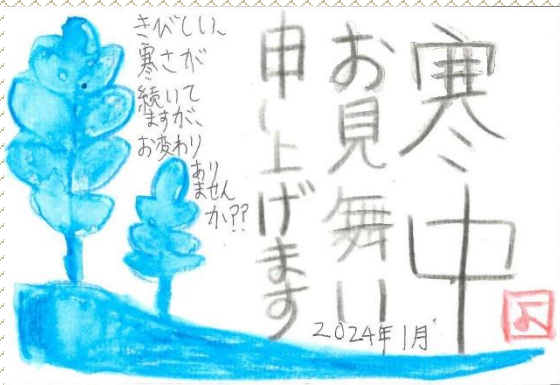 寒中
お見舞い
申し上げます
きびしい
寒さが
続いて
ますが、
お変わり
あり
ません
か??
2024年1月
よ